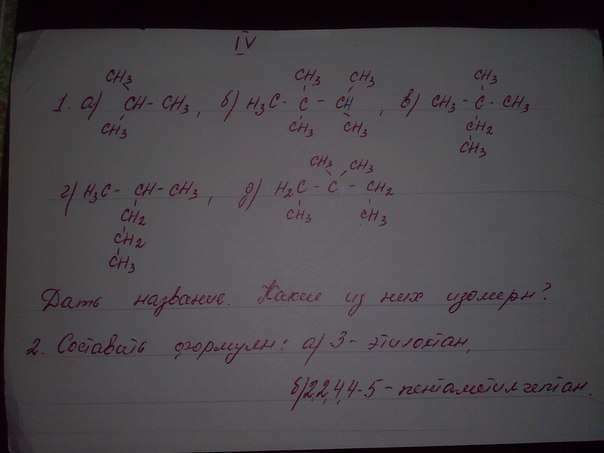 IV
CH3 CH3 CH3 CH3
1. а) CH-CH3, б) H3C-C-CH, в) CH3-C-CH3
CH3 CH3 CH3 CH2
CH3
CH3 CH3
г) H3C-CH-CH3, д) H2C-C-CH2
CH2 CH3 CH3
CH2
CH3
Дать название. Какие из них изомеры?
2. Составить формулы: а) 3-этилоктан,
б) 2,2,4,4-5-пентаметилгептан.